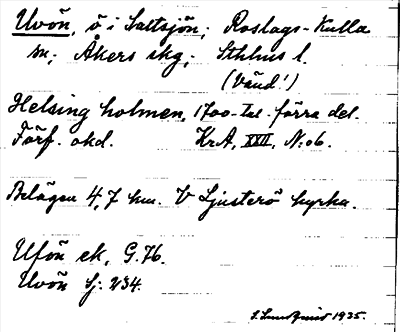 Uvön, ö i Saltsjön; Roslags-Kulla
sn; Åkers skg; Sthlms l.
(Vänd!)
Helsingholmen, 1700-tal. förra del.
Förf. okd. KrA, XXII, N:o 6.
Belägen 4,7 km. V Ljusterö kyrka.
Ufön ek, G.76.
Uvön Sj: 234.
1935.